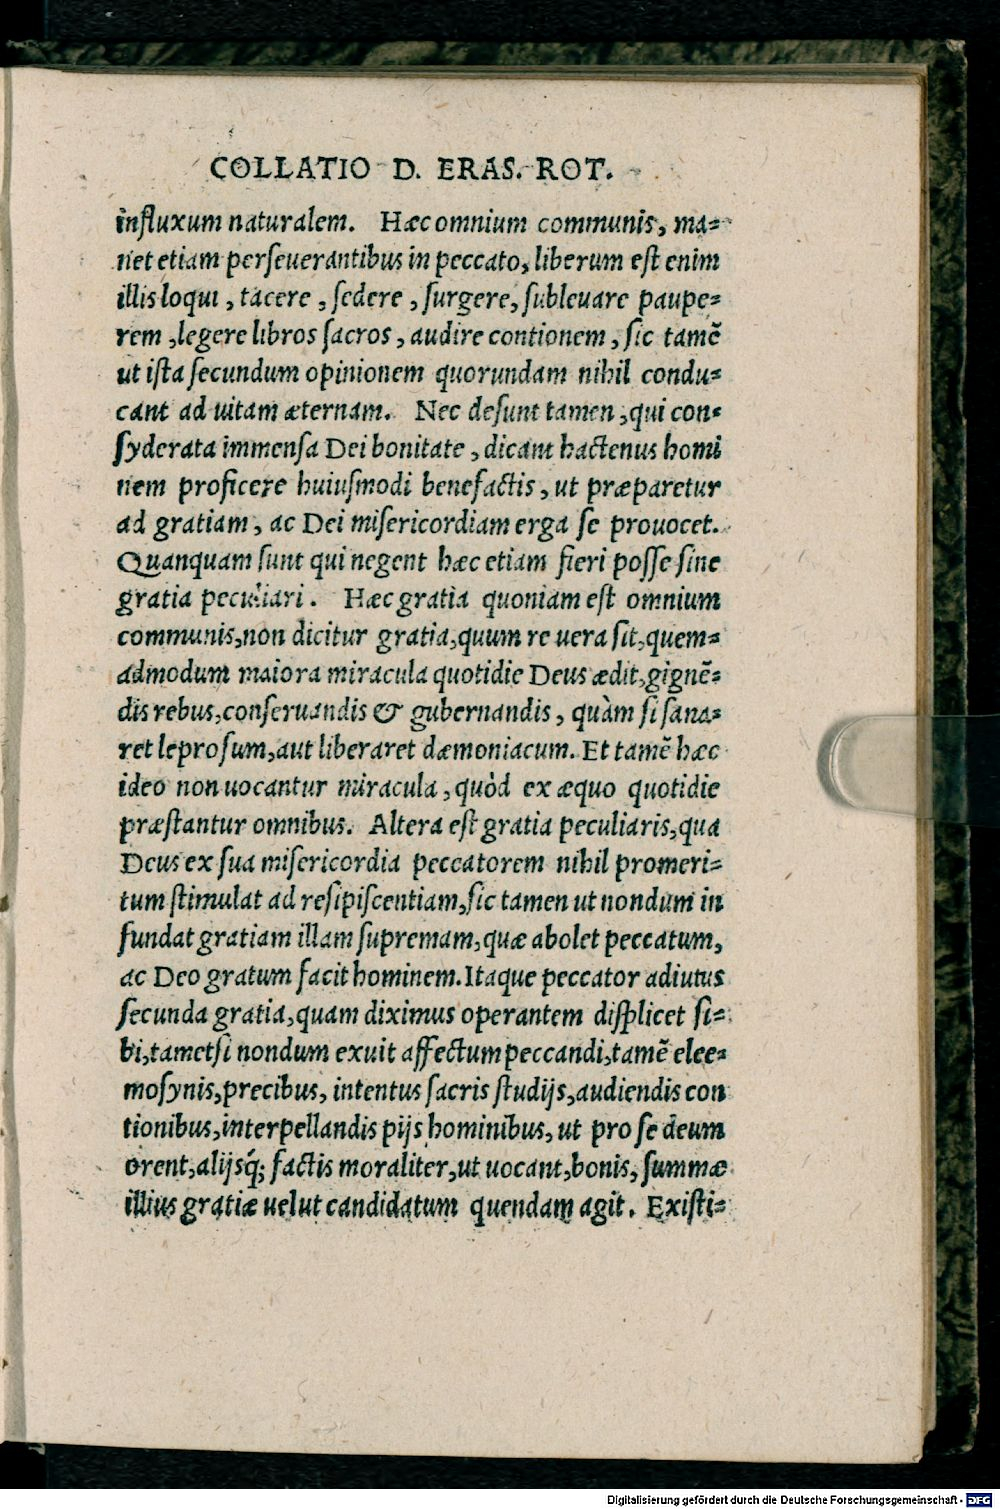 COLLATIO D. ERAS. ROT.
influxum naturalem. Hæc omnium communis, ma⸗
net etiam perseuerantibus in peccato, liberum est enim
illis loqui, tacere, sedere, surgere, subleuare paupe⸗
rem, legere libros sacros, audire contionem, sic tamẽ
ut ista secundum opinionem quorundam nihil condu⸗
cant ad uitam æternam. Nec desunt tamen, qui con⸗
syderata immensa Dei bonitate, dicant hactenus homi
nem proficere huiusmodi benefactis, ut præparetur
ad gratiam, ac Dei misericordiam erga se prouocet.
Quanquam sunt qui negent hæc etiam fieri posse sine
gratia peculiari. Hæc gratia quoniam est omnium
communis, non dicitur gratia, quum re uera sit, quem⸗
admodum maiora miracula quotidie Deus ædit, gignẽ⸗
dis rebus, conseruandis & gubernandis, quàm si sana⸗
ret leprosum, aut liberaret dæmoniacum. Et tamẽ hæc
ideo non uocantur miracula, quòd ex æquo quotidie
præstantur omnibus. Altera est gratia peculiaris, qua
Deus ex sua misericordia peccatorem nihil promeri⸗
tum stimulat ad resipiscentiam, sic tamen ut nondum in
fundat gratiam illam supremam, quæ abolet peccatum,
ac Deo gratum facit hominem. Itaque peccator adiutus
secunda gratia, quam diximus operantem displicet si⸗
bi, tametsi nondum exuit affectum peccandi, tamẽ elee⸗
mosynis, precibus, intentus sacris studijs, audiendis con
tionibus, interpellandis pijs hominibus, ut pro se deum
orent, alijsq́; factis moraliter, ut uocant, bonis, summæ
illius gratiæ uelut candidatum quendam agit. Existi⸗
Digitalisierung gefördert durch die Deutsche Forschungsgemeinschaft - DFG